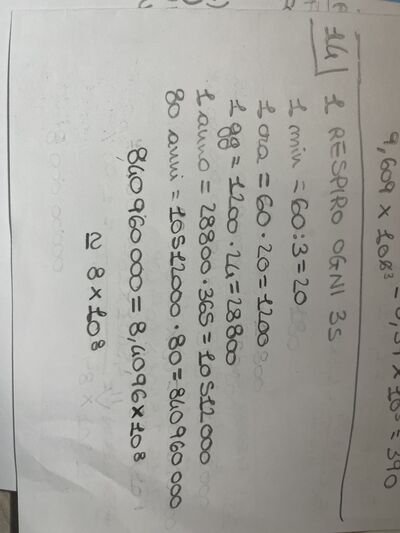 9,609 x 10⁸³
= 390
14| 1 RESPIRO OGNI 3s
1 min = 60:3 = 20
1 ora = 60 · 20 = 1200
1 gg = 1200 · 24 = 28800
1 anno = 28800 · 365 = 10512000
80 anni = 10512000 · 80 = 840960000
840960000 = 8,4096 x 10⁸
≅ 8 x 10⁸